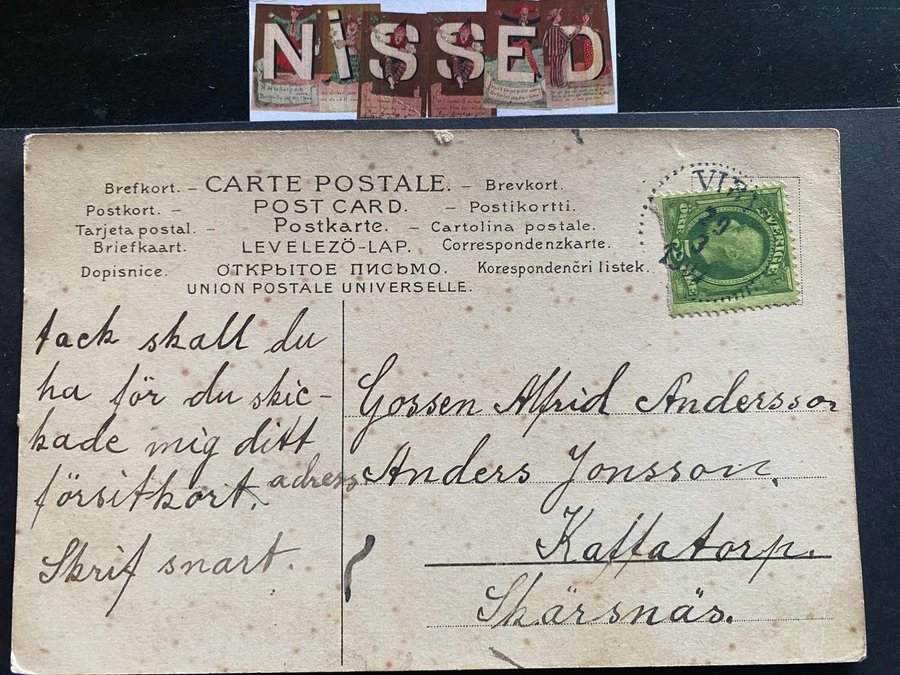 NiSSED
Brefkort. – CARTE POSTALE. – Brevkort.
Postkort. – POST CARD. – Postikortti.
Tarjeta postal. – Postkarte. – Cartolina postale.
Briefkaart. LEVELEZÖ-LAP. Correspondenzkarte.
Dopisnice. ОТКРЫТОЕ ПИСЬМО. Korespondenčri listek.
UNION POSTALE UNIVERSELLE.
SVERIGE
tack skall du
ha för du skic-
kade mig ditt
försitkort. adress
Skrif snart.
Gossen Alfrid Andersson
Anders Jonsson.
Kaffatorp.
Skärsnäs.